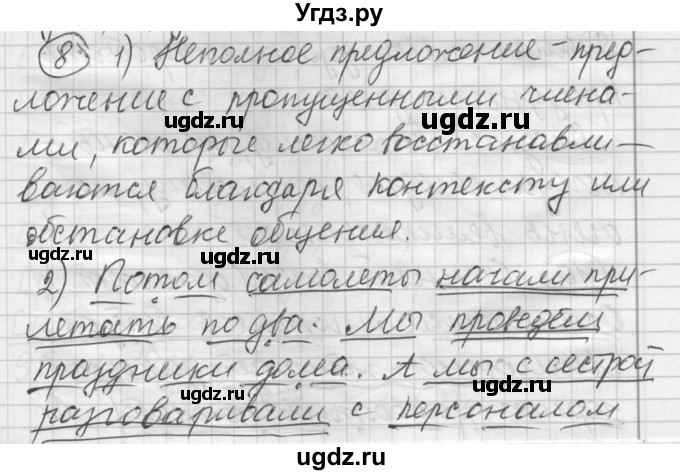 Угдз.ру
8. 1) Неполное предложение – пред-
ложение с пропущенными члена-
ugdz.ru ugdz.ru
ми, которые легко восстанавли-
ваются благодаря контексту или
обстановке общения.
ugdz.ru ugdz.ru
2) Потом самолеты начали при-
летать по два. Мы проведем
ugdz.ru ugdz.ru
праздники дома. А мы с сестрой
разговаривали с персоналом
ugdz.ru ugdz.ru